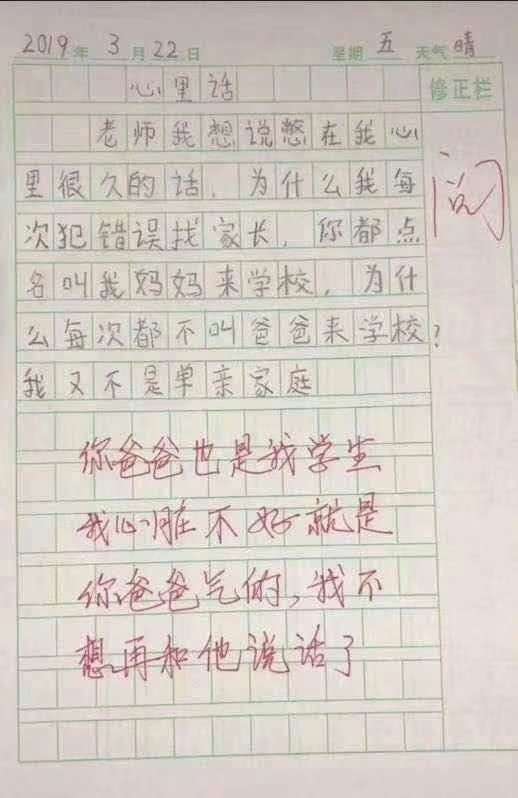 2019年 3月22日 星期 五 天气 晴
心里话
修正栏
老师我想说憋在我心
里很久的话，为什么我每
次犯错误找家长，你都点
名叫我妈妈来学校，为什
么每次都不叫爸爸来学校？
我又不是单亲家庭
阅
你爸爸也是我学生
我心脏不好就是
你爸爸气的，我不
想再和他说话了